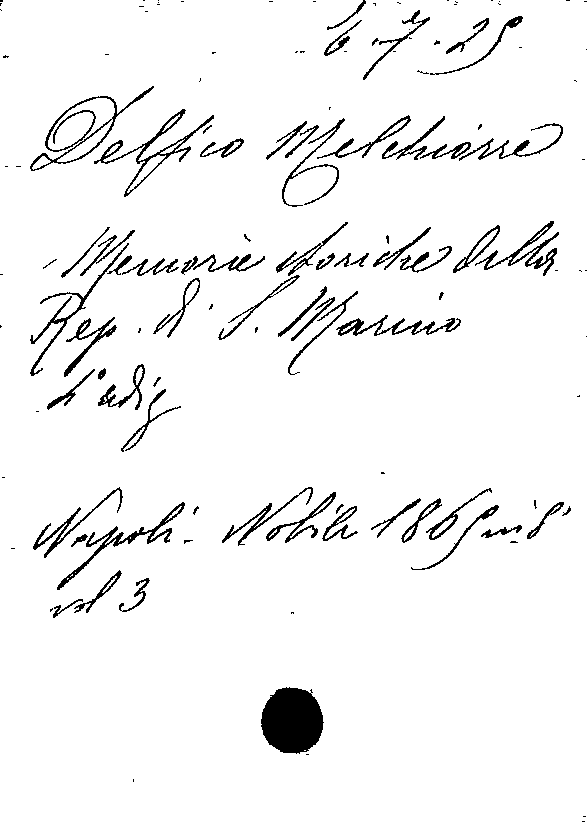 6.7.25
Delfico Melchiorre
Memorie storiche della
Rep. di S. Marino
4ª ediz
Napoli - Nobile 1865 in 8°
vol 3